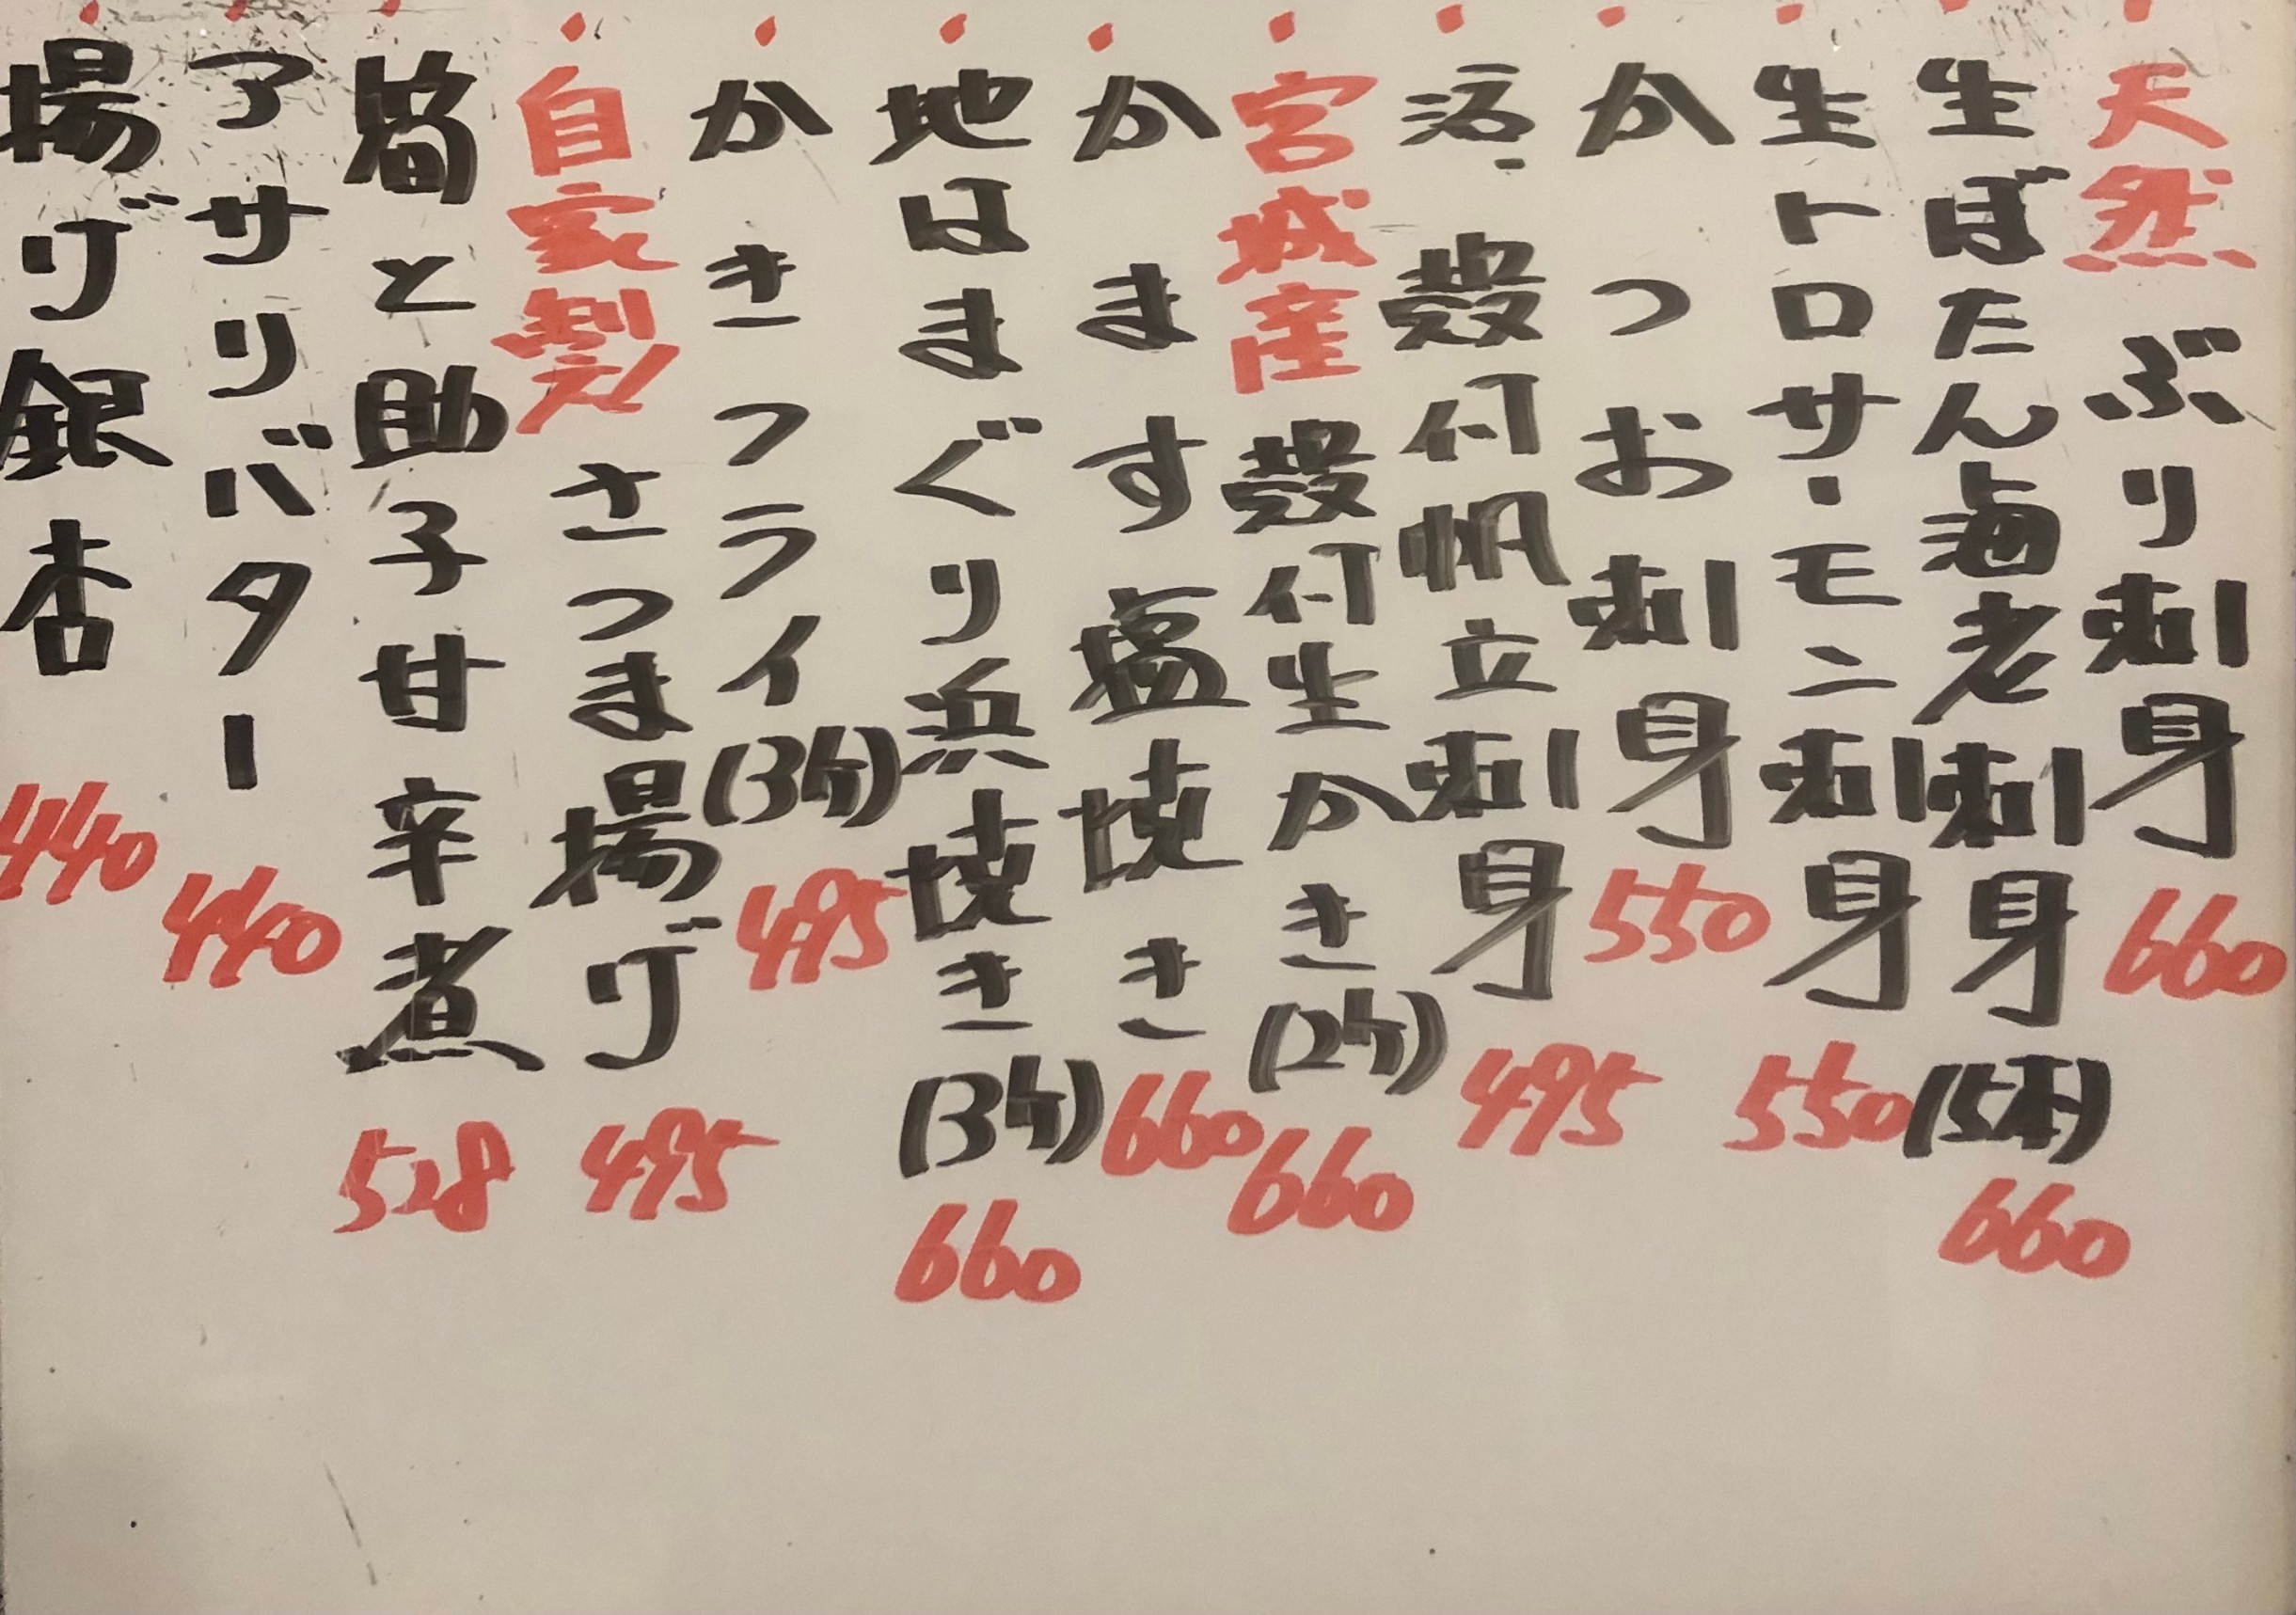 天然ぶり刺身 660
生ぼたん海老刺身(5本) 660
生トロサーモン刺身 550
かつお刺身 550
活・殻付帆立刺身 495
宮城産殻付生かき(2ケ) 660
かます塩焼き 660
地はまぐり浜焼き(3ケ) 660
かきフライ(3ケ) 495
自家製さつま揚げ 495
筍と助子甘辛煮 528
アサリバター 440
揚げ銀杏 440